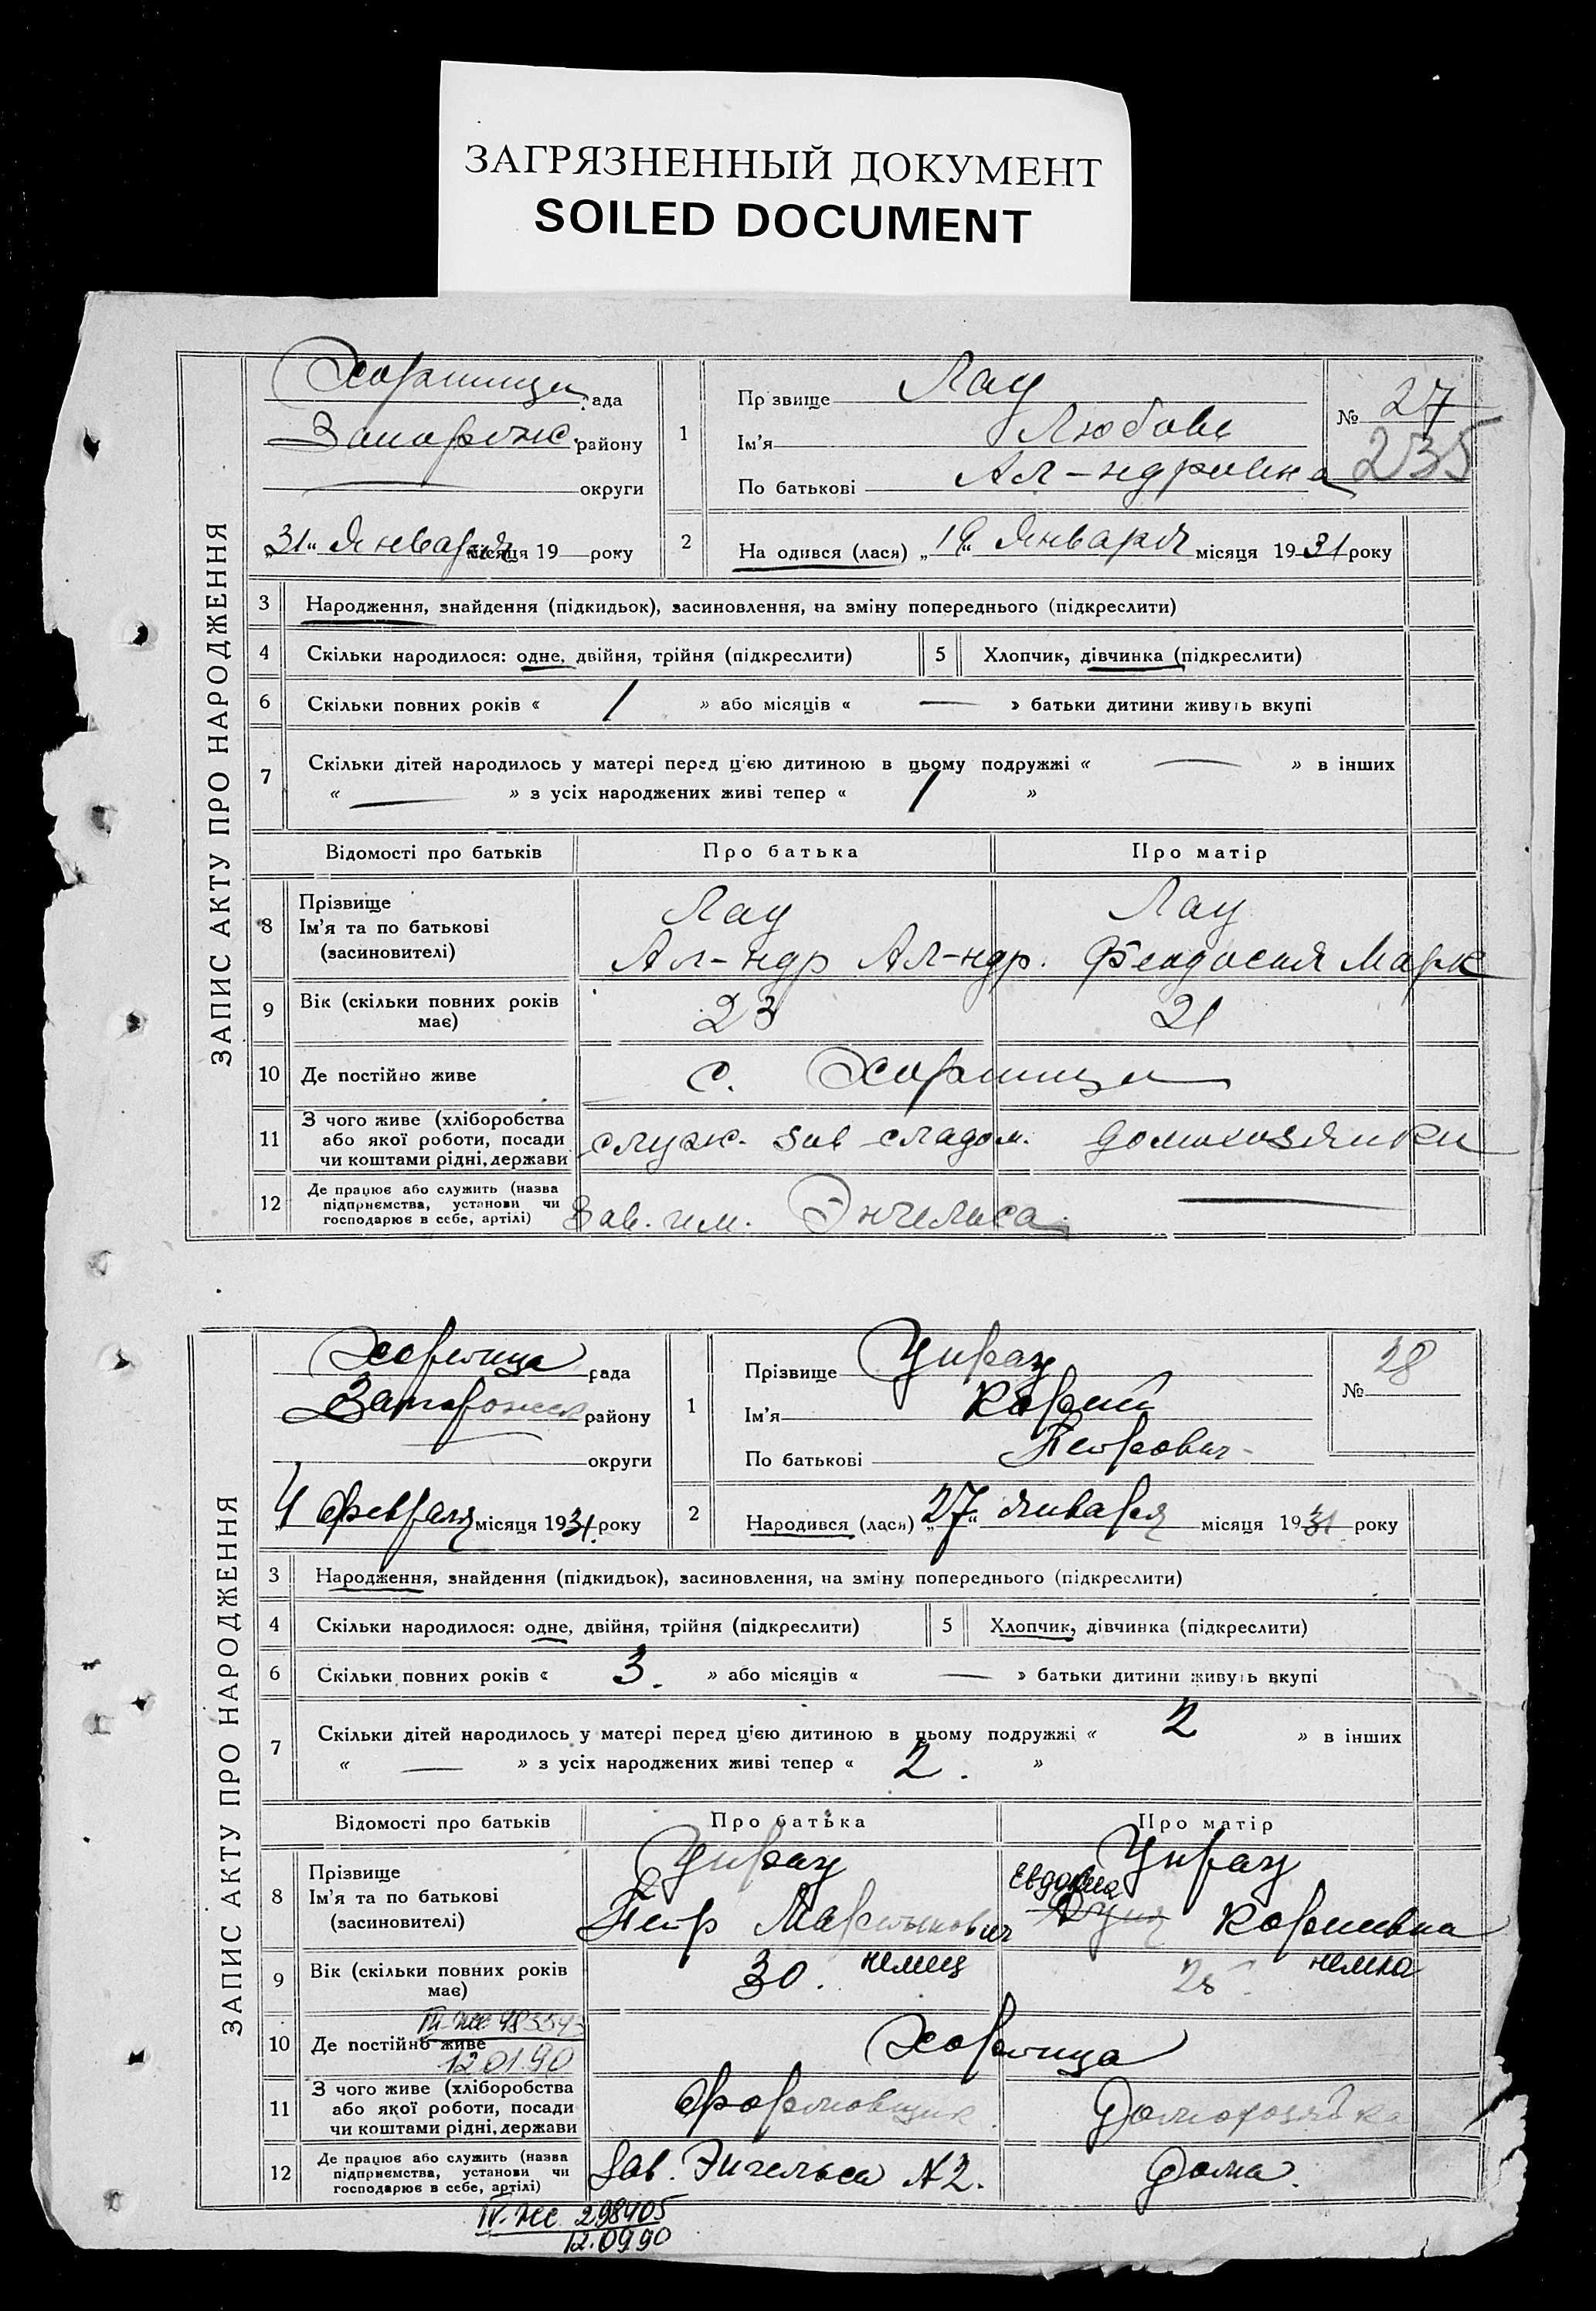 ЗАГРЯЗНЕННЫЙ ДОКУМЕНТ
SOILED DOCUMENT
ЗАПИС АКТУ ПРО НАРОДЖЕННЯ
Хортица рада
Запорожс. району
округи
„31“ Января місяця 19 року
1
Пр звище Лау
Ім’я Любовь
По батькові Ал-ндровна
№ 27
235
2
На одився (лася) „19“ Января місяця 1931 року
3 Народження, знайдення (підкидьок), засиновлення, на зміну попереднього (підкреслити)
4 Скільки народилося: одне, двійня, трійня (підкреслити) 5 Хлопчик, дівчинка (підкреслити)
6 Скільки повних років « 1 » або місяців « — » батьки дитини живуть вкупі
7 Скільки дітей народилось у матері перед цією дитиною в цьому подружжі « — » в інших
« — » з усіх народжених живі тепер « 1 »
Відомості про батьків Про батька Про матір
8 Прізвище
Ім’я та по батькові
(засиновителі)
Лау Лау
Ал-ндр Ал-ндр. Феодосия Марк
9 Вік (скільки повних років має) 23 21
10 Де постійно живе с. Хортица
11 З чого живе (хліборобства
або якої роботи, посади
чи коштами рідні, держави
служ. зав складом. домохозяйка
12 Де працює або служить (назва
підприємства, установи чи
господарює в себе, артілі)
Зав. им. Энгельса. —
ЗАПИС АКТУ ПРО НАРОДЖЕННЯ
Хортица рада
Запорожск району
округи
„4 февраля місяця 1931. року
1
Прізвище
Ім’я Корней
По батькові Петрович
№ 28
2
Народився (лася) „27“ января місяця 1931 року
3 Народження, знайдення (підкидьок), засиновлення, на зміну попереднього (підкреслити)
4 Скільки народилося: одне, двійня, трійня (підкреслити) 5 Хлопчик, дівчинка (підкреслити)
6 Скільки повних років « 3. » або місяців « — » батьки дитини живуть вкупі
7 Скільки дітей народилось у матері перед цією дитиною в цьому подружжі « 2 » в інших
« — » з усіх народжених живі тепер « 2. »
Відомості про батьків Про батька Про матір
8 Прізвище
Ім’я та по батькові
(засиновителі)
Петр Мартынович Корнеевна
9 Вік (скільки повних років має) 30. немец немка
10 Де постійно живе Хортица
12 01 90
11 З чого живе (хліборобства
або якої роботи, посади
чи коштами рідні, держави
формовщик. Домохозяйка
12 Де працює або служить (назва
підприємства, установи чи
господарює в себе, артілі)
Зав. Энгельса N2. Дома.
IV-ЖС 298405
12.09.90